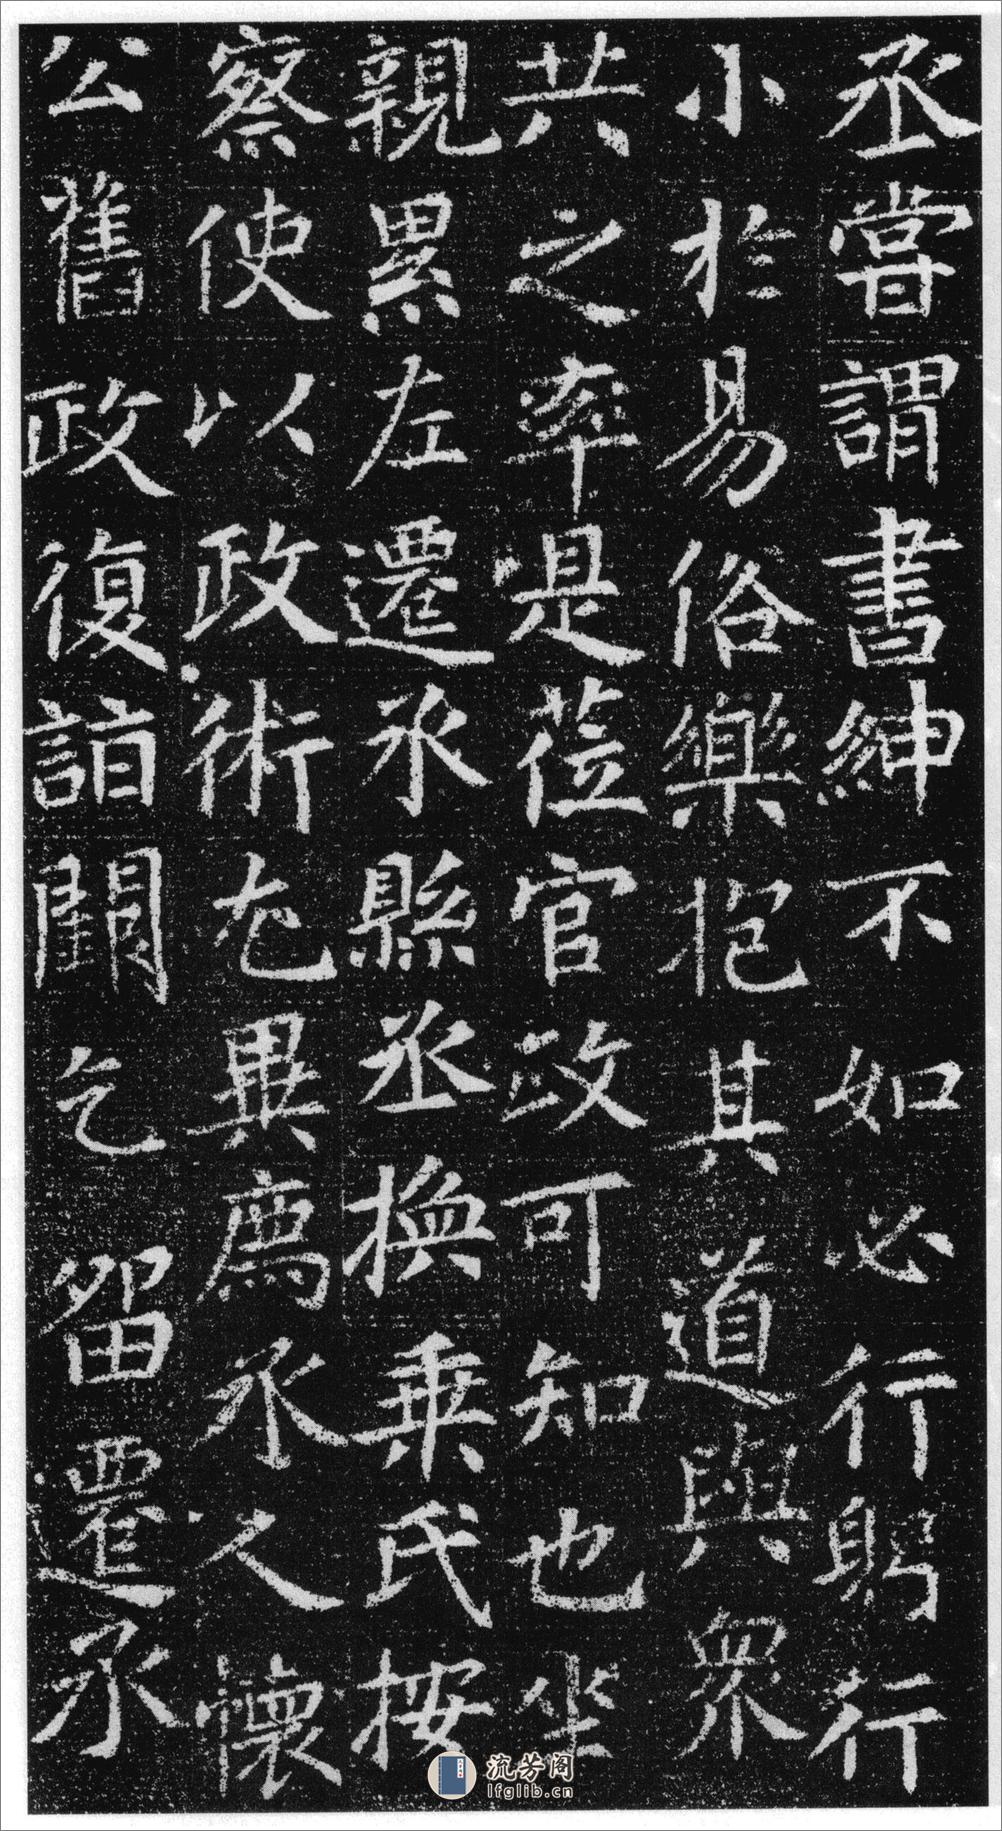 丞嘗謂書紳不如必行躬行
小於易俗樂抱其道與衆
共之率是莅官政可知也坐
親累左遷氶縣丞換乗氏按
察使以政術尤異薦氶人懷
公舊政復詣闕乞留還氶
流芳阁
lfglib.cn